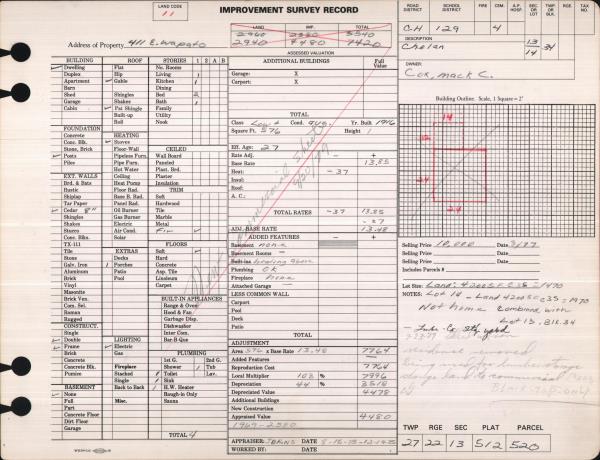 LAND CODE
11
IMPROVEMENT SURVEY RECORD
Address of Property 411 E. Wapato
LAND IMP. TOTAL
2960 2380 5340
2940 4480 7420
ASSESSED VALUATION
ROAD DISTRICT SCHOOL DISTRICT FIRE CEM. A.P. HOSP. SEC. OR LOT TWP. OR BLK RGE. TAX NO.
CH 129 4 13 34
Chelan 14
OWNER
Cox, Mack C.
BUILDING
Dwelling
Duplex
Apartment
Barn
Shed
Garage
Cabin
ROOF
Flat
Hip
Gable
Shingles
Shakes
Pat Shingle
Built-up
Roll
STORIES 1 2
No. Rooms
Living 1
Kitchen 1
Dining
Bed 2
Bath 1
Family
Utility
Nook
FOUNDATION
Concrete
Conc. Blk.
Stone, Brick
Posts
Piles
HEATING
Stoves
Floor Furn.
Pipeless Furn.
Pipe Furn.
Hot Water
Ceiling
Heat Pump
Floor Rad.
Base B. Rad.
Panel Rad.
Oil Burner
Gas Burner
Electric
Air Cond.
Solar
CEILED
Wall Board
Paneled
Plast. Brd.
Plaster
Insulation
TRIM
Soft
Hardwood
Tile
Marble
Metal
Fir
EXT. WALLS
Brd. & Bats
Rustic
Shiplap
Tar Paper
Cedar 8"
Shingles
Shakes
Stucco
Conc. Blks.
TX-111
Tile
Stone
Galv. Iron
Aluminum
Brick
Vinyl
Masonite
Brick Ven.
Com. Sel.
Roman
Rugged
EXTRAS
Decks
Porches
Patio
Pool
FLOORS
Soft
Hard
Concrete
Asp. Tile
Linoleum
Carpet
BUILT-IN APPLIANCES
Range & Oven
Hood & Fan
Garbage Disp.
Dishwasher
Inter Com.
Bar-B-Que
CONSTRUCT.
Single
Double
Frame
Brick
Concrete
Concrete Blk.
Pumice
LIGHTING
Electric
Gas
Fireplace
Stacked
Single
Back to Back
Misc.
PLUMBING
1st G. 2nd G.
Shower 1 Tub
Toilet 1 Lav.
Sink
H.W. Heater
Rough-in Only
Sauna
BASEMENT
None
Full
Part
Concrete Floor
Dirt Floor
Garage
TOTAL 4
ADDITIONAL BUILDINGS Full Value
Garage: X
Carport: X
TOTAL
Class Low 4 Cond. avg. Yr. Built 1916
Square Ft. 576 Height 1
Eff. Age: 27
Rate Adj. − +
Base Rate 13.85
Heat: -37
Insul.
Roof:
A. C.:
TOTAL RATES -37 13.85
-37
ADJ. BASE RATE 13.48
ADDED FEATURES − +
Basement none
Basement Rooms −
Built-ins
Plumbing OK
Fireplace none
Attached Garage −
LESS COMMON WALL
Carport
Pool
Deck
Patio
TOTAL
ADJUSTMENT
Area 576 x Base Rate 13.48 7764
Added Features
Reproduction Cost 7764
Local Multiplier 103 % 7996
Depreciation 44 % 3518
Depreciated Value 4478
Additional Buildings
New Construction
Appraised Value 4480
1969-2380
APPRAISER:
WORKED BY: DATE
Building Outline: Scale, 1 Square = 2'
14
24
24
Selling Price 10,000 Date 3/77
Selling Price Date
Includes Parcels #
Lot Size: Land: 4200 S.F. C35 - 1470
NOTES: Lot 14 - Land 4200 S.F. C35 - 1470
Not home Combined with
Lot 13, Blk. 34
residence removed
TWP RGE SEC PLAT PARCEL
27 22 13 512 520